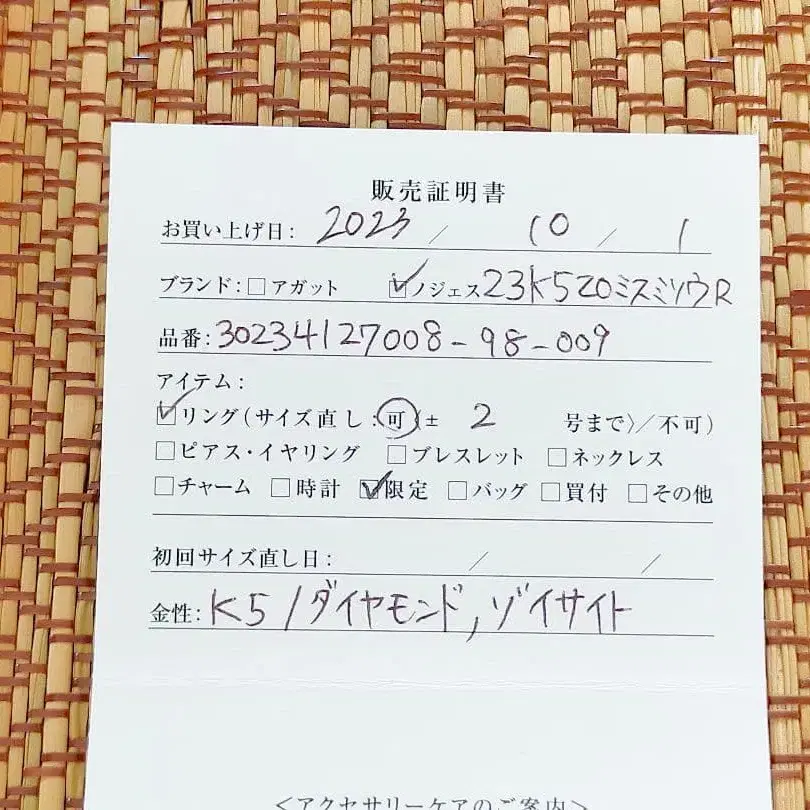 販売証明書
お買い上げ日: 2023 / 10 / 1
ブランド: □アガット ☑ノジェス 23K5ZOミスミソウR
品番: 30234127008-98-009
アイテム:
☑リング(サイズ直し:可(± 2 号まで)/不可)
□ピアス・イヤリング □ブレスレット □ネックレス
□チャーム □時計 ☑限定 □バッグ □買付 □その他
初回サイズ直し日: / /
金性: K5/ダイヤモンド,ゾイサイト
<アクセサリーケアのご案内>